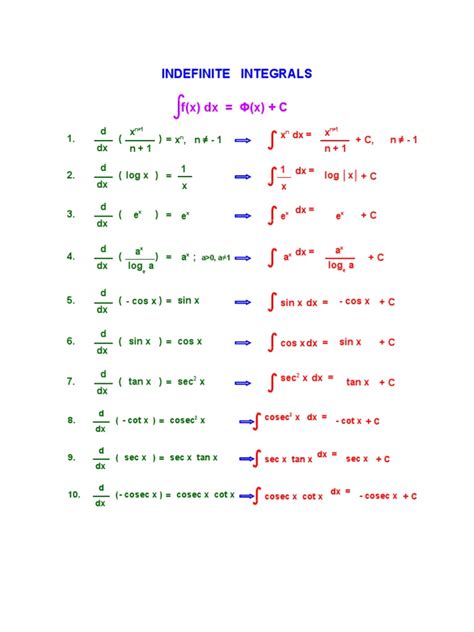 INDEFINITE INTEGRALS
∫f(x) dx = Φ(x) + C
1. d/dx ( xⁿ⁺¹/n + 1 ) = xⁿ, n ≠ - 1 ⇒ ∫ xⁿ dx = xⁿ⁺¹/n + 1 + C, n ≠ - 1
2. d/dx ( log x ) = 1/x ⇒ ∫ 1/x dx = log |x| + C
3. d/dx ( eˣ ) = eˣ ⇒ ∫ eˣ dx = eˣ + C
4. d/dx ( aˣ/logₑ a ) = aˣ ; a>0, a≠1 ⇒ ∫ aˣ dx = aˣ/logₑ a + C
5. d/dx ( - cos x ) = sin x ⇒ ∫ sin x dx = - cos x + C
6. d/dx ( sin x ) = cos x ⇒ ∫ cos x dx = sin x + C
7. d/dx ( tan x ) = sec² x ⇒ ∫ sec² x dx = tan x + C
8. d/dx ( - cot x ) = cosec² x ⇒ ∫ cosec² x dx = - cot x + C
9. d/dx ( sec x ) = sec x tan x ⇒ ∫ sec x tan x dx = sec x + C
10. d/dx (- cosec x ) = cosec x cot x ⇒ ∫ cosec x cot x dx = - cosec x + C